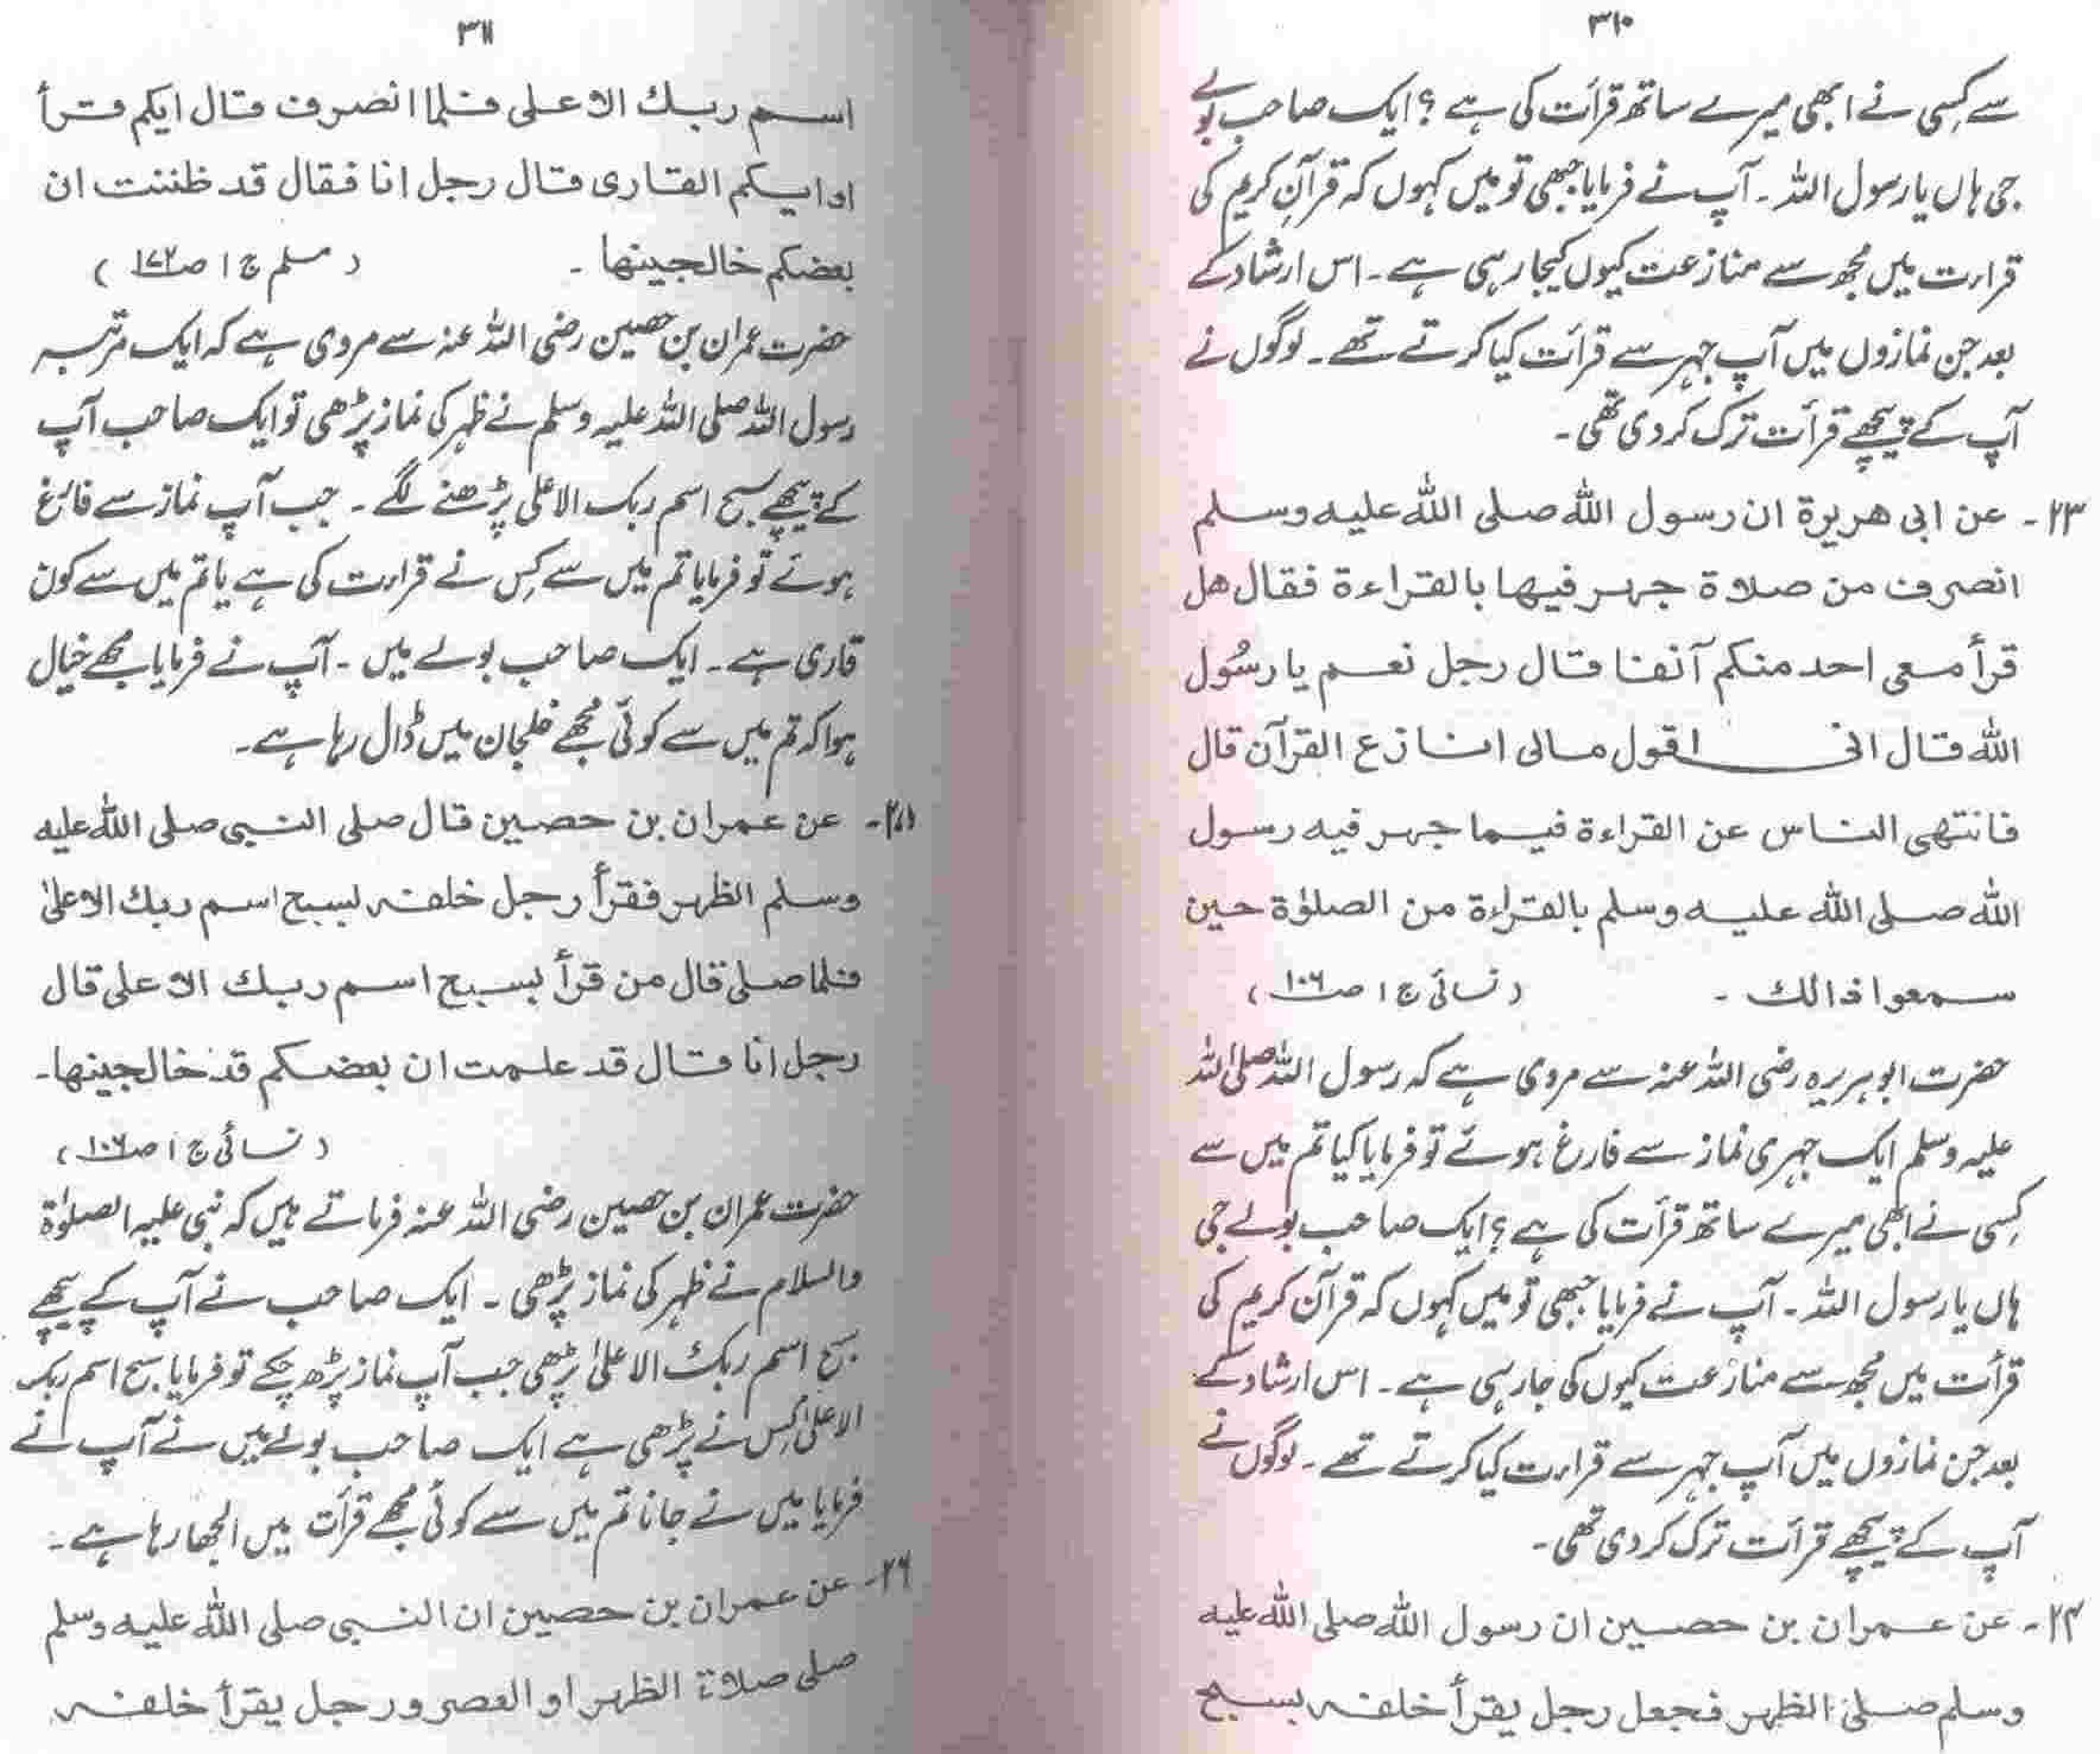 ۳۱۰
سے کسی نے ابھی میرے ساتھ قرأت کی ہے ؟ ایک صاحب بولے
جی ہاں یا رسول اللہ ۔ آپ نے فرمایا جبھی تو میں کہوں کہ قرآن کریم کی
قرارت میں مجھ سے منازعت کیوں کیجا رہی ہے ۔ اس ارشاد کے
بعد جن نمازوں میں آپ جہر سے قرأت کیا کرتے تھے ۔ لوگوں نے
آپ کے پیچھے قرأت ترک کر دی تھی ۔
۲۳- عن ابی هریرة ان رسول الله صلی الله علیه وسلم
انصرف من صلاة جهر فیها بالقراءة فقال هل
قرأ معی احد منکم آنفا قال رجل نعم یا رسُول
الله قال انی اقول مالی انازع القرآن قال
فانتهی الناس عن القراءة فیما جهر فیه رسول
الله صلی الله علیه وسلم بالقراءة من الصلوٰة حین
سمعوا ذالك - ( نسائی ج ۱ ص۱۰۶ )
حضرت ابوہریرہ رضی اللہ عنہ سے مروی ہے کہ رسول اللہ صلی اللہ
علیہ وسلم ایک جہری نماز سے فارغ ہوئے تو فرمایا کیا تم میں سے
کِسی نے ابھی میرے ساتھ قرأت کی ہے ؟ ایک صاحب بولے جی
ہاں یا رسول اللہ ۔ آپ نے فرمایا جبھی تو میں کہوں کہ قرآن کریم کی
قرأت میں مجھ سے منازعت کیوں کی جا رہی ہے ۔ اس ارشاد کے
بعد جن نمازوں میں آپ جہر سے قرارت کیا کرتے تھے ۔ لوگوں نے
آپ کے پیچھے قرأت ترک کر دی تھی ۔
۲۴- عن عمران بن حصین ان رسول الله صلی الله علیه
وسلم صلیٰ الظهر فجعل رجل یقرأ خلفه بسبح
۳۱۱
اسم ربك الاعلی فلما انصرف قال ایکم قرأ
او ایکم القاری قال رجل انا فقال قد ظننت ان
بعضکم خالجینها - ( مسلم ج ۱ ص۱۷۲ )
حضرت عمران بن حصین رضی اللہ عنہ سے مروی ہے کہ ایک مرتبہ
رسول اللہ صلی اللہ علیہ وسلم نے ظہر کی نماز پڑھی تو ایک صاحب آپ
کے پیچھے سبح اسم ربک الاعلی پڑھنے لگے ۔ جب آپ نماز سے فارغ
ہوئے تو فرمایا تم میں سے کِس نے قرارت کی ہے یا تم میں سے کون
قاری ہے ۔ ایک صاحب بولے میں ۔ آپ نے فرمایا مجھے خیال
ہوا کہ تم میں سے کوئی مجھے خلجان میں ڈال رہا ہے ۔
عن عمران بن حصین قال صلی النبی صلی الله علیه
وسلم الظهر فقرأ رجل خلفه بسبح اسم ربك الاعلیٰ
فلما صلی قال من قرأ بسبح اسم ربك الاعلی قال
رجل انا قال قد علمت ان بعضکم قد خالجینها -
( نسائی ج ۱ ص۱۰۶ )
حضرت عمران بن حصین رضی اللہ عنہ فرماتے ہیں کہ نبی علیہ الصلوٰة
والسلام نے ظہر کی نماز پڑھی ۔ ایک صاحب نے آپ کے پیچھے
سبح اسم ربک الاعلیٰ پڑھی جب آپ نماز پڑھ چکے تو فرمایا سبح اسم ربک
الاعلیٰ کِس نے پڑھی ہے ایک صاحب بولے میں نے آپ نے
فرمایا میں نے جانا تم میں سے کوئی مجھے قرأت میں الجھا رہا ہے ۔
۲۶- عن عمران بن حصین ان النبی صلی الله علیه وسلم
صلی صلاة الظهر او العصر ورجل یقرأ خلفه